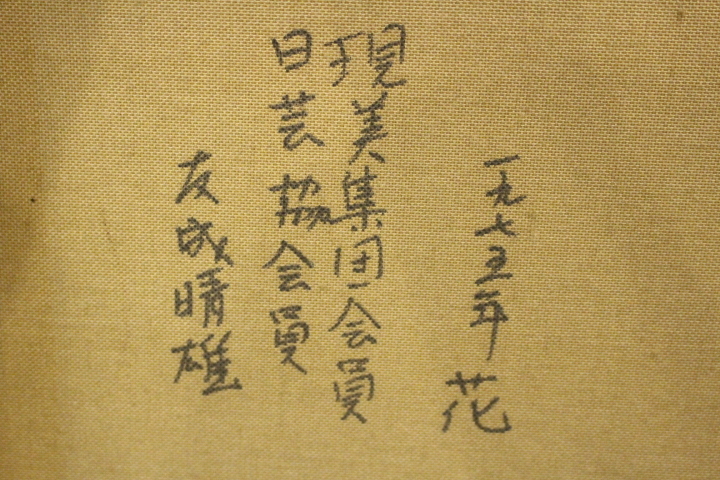 一九七五年 花
現美集団会員
日芸協会員
友成晴雄